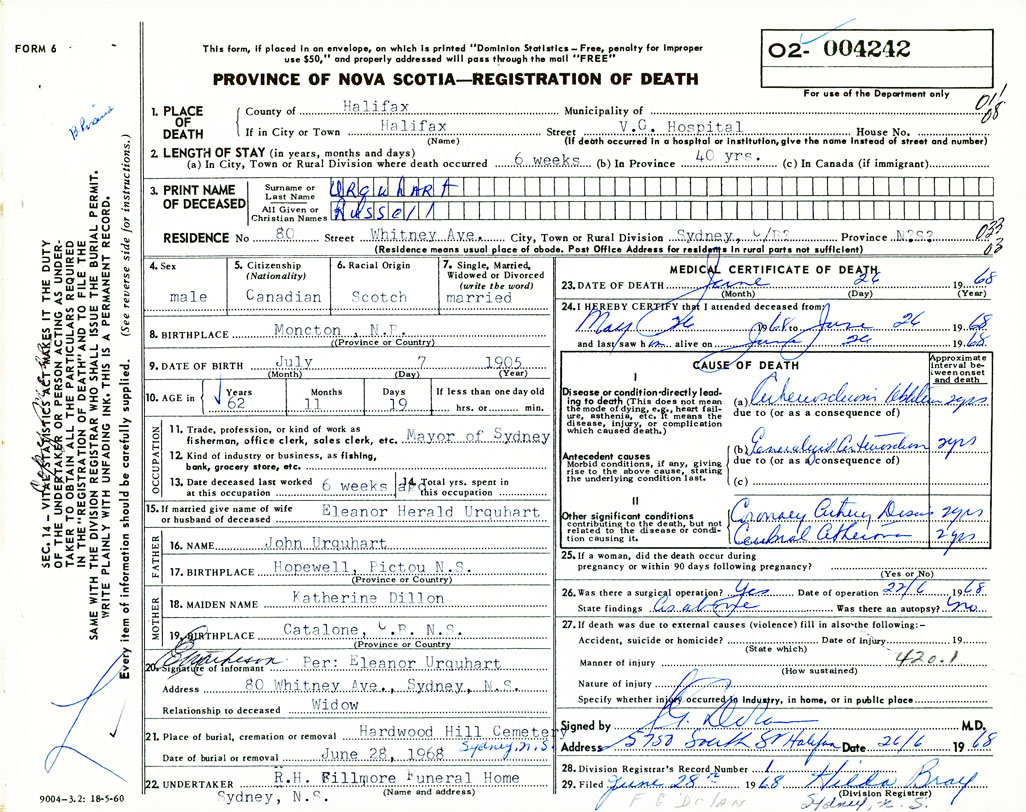 FORM 6
This form, if placed in an envelope, on which is printed "Dominion Statistics – Free, penalty for improper
use $50," and properly addressed will pass through the mail "FREE"
PROVINCE OF NOVA SCOTIA—REGISTRATION OF DEATH
02- 004242
For use of the Department only
011
08
1. PLACE OF DEATH
County of Halifax Municipality of
If in City or Town Halifax Street V.G. Hospital House No.
(Name) (If death occurred in a hospital or institution, give the name instead of street and number)
2. LENGTH OF STAY (in years, months and days)
(a) In City, Town or Rural Division where death occurred 6 weeks (b) In Province 40 yrs. (c) In Canada (if immigrant)
3. PRINT NAME OF DECEASED
Surname or Last Name Urquhart
All Given or Christian Names Russell
RESIDENCE No 80 Street Whitney Ave. City, Town or Rural Division Sydney, C/B? Province N?S?
033
03
(Residence means usual place of abode. Post Office Address for residents in rural parts not sufficient)
4. Sex
male
5. Citizenship
(Nationality)
Canadian
6. Racial Origin
Scotch
7. Single, Married,
Widowed or Divorced
(write the word)
married
8. BIRTHPLACE Moncton, N.B.
(Province or Country)
9. DATE OF BIRTH July 7 1905
(Month) (Day) (Year)
10. AGE in Years Months Days If less than one day old
62 11 19 hrs. or min.
OCCUPATION
11. Trade, profession, or kind of work as
fisherman, office clerk, sales clerk, etc. Mayor of Sydney
12. Kind of industry or business, as fishing,
bank, grocery store, etc.
13. Date deceased last worked
at this occupation 6 weeks ago
14. Total yrs. spent in
this occupation
15. If married give name of wife
or husband of deceased Eleanor Herald Urquhart
FATHER
16. NAME John Urquhart
17. BIRTHPLACE Hopewell, Pictou N.S.
(Province or Country)
MOTHER
18. MAIDEN NAME Katherine Dillon
19. BIRTHPLACE Catalone, C.B. N.S.
(Province or Country)
20. Signature of informant Per: Eleanor Urquhart
Address 80 Whitney Ave., Sydney, N.S.
Relationship to deceased Widow
21. Place of burial, cremation or removal Hardwood Hill Cemetery
Sydney, N.S.
Date of burial or removal June 28, 1968
22. UNDERTAKER R.H. Fillmore Funeral Home
Sydney, N.S. (Name and address)
MEDICAL CERTIFICATE OF DEATH
23. DATE OF DEATH June 26 1968
(Month) (Day) (Year)
24. I HEREBY CERTIFY that I attended deceased from:
May 26 1968 to June 26 1968
and last saw him alive on June 26 1968
CAUSE OF DEATH
Approximate
interval be-
tween onset
and death
I
Disease or condition directly lead-
ing to death (This does not mean
the mode of dying, e.g., heart fail-
ure, asthenia, etc. It means the
disease, injury, or complication
which caused death.)
(a) 2yrs
due to (or as a consequence of)
Antecedent causes
Morbid conditions, if any, giving
rise to the above cause, stating
the underlying condition last.
(b) Generalized 2yrs
due to (or as a consequence of)
(c)
II
Other significant conditions
contributing to the death, but not
related to the disease or condi-
tion causing it.
Coronary Artery Disease 2yrs
Cerebral Atheroma 2yrs
25. If a woman, did the death occur during
pregnancy or within 90 days following pregnancy?
(Yes or No)
26. Was there a surgical operation? Yes Date of operation 22/6 1968
State findings As above Was there an autopsy? No
27. If death was due to external causes (violence) fill in also the following:–
Accident, suicide or homicide? Date of injury 19
(State which)
420.1
Manner of injury
(How sustained)
Nature of injury
Specify whether injury occurred in industry, in home, or in public place
Signed by M.D.
Address 5750 South St Halifax Date 26/6 1968
28. Division Registrar's Record Number 1
29. Filed June 28th 1968 Hilda Bray
(Division Registrar)
F G DOLAN
Sydney, N.S.
9004–3.2: 18-5-60
SEC. 14 – VITAL STATISTICS ACT MAKES IT THE DUTY
OF THE UNDERTAKER OR PERSON ACTING AS UNDER-
TAKER TO OBTAIN ALL THE PARTICULARS REQUIRED
IN THE "REGISTRATION OF DEATH" AND TO FILE THE
SAME WITH THE DIVISION REGISTRAR WHO SHALL ISSUE THE BURIAL PERMIT.
WRITE PLAINLY WITH UNFADING INK. THIS IS A PERMANENT RECORD.
Every item of information should be carefully supplied. (See reverse side for instructions.)